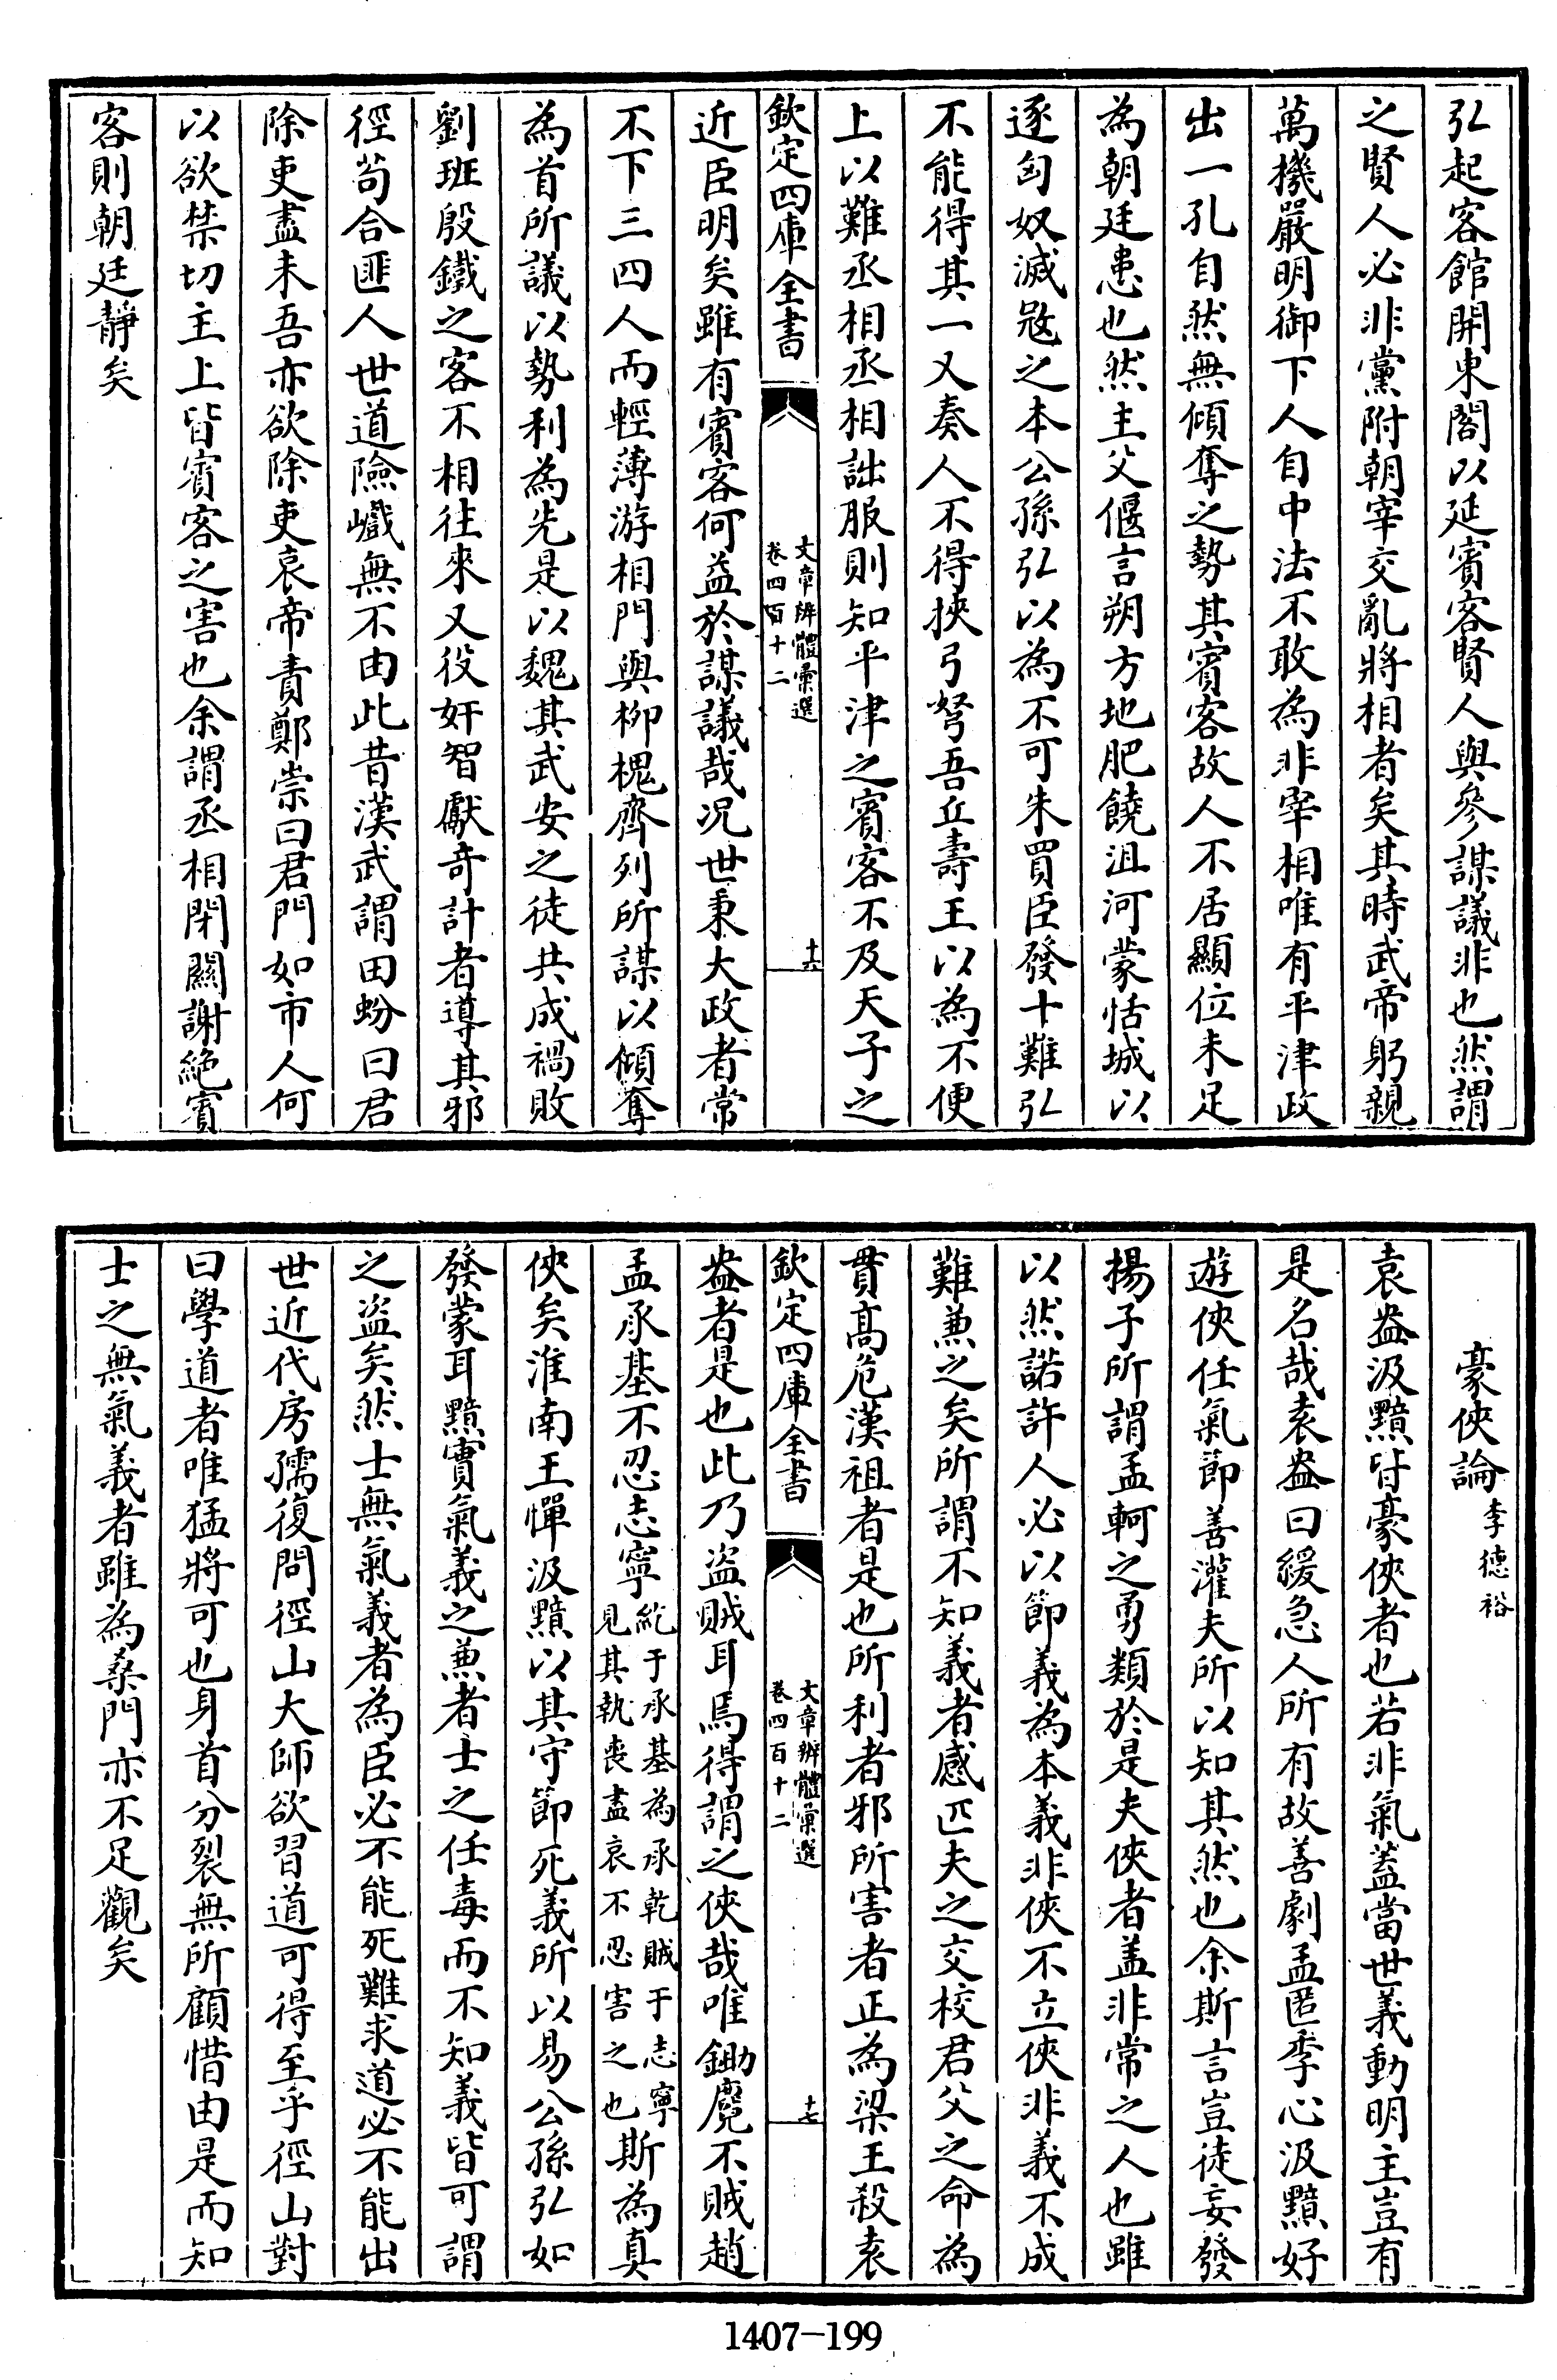 弘起客館開東閣以延賓客賢人與參謀議非也然謂
之賢人必非黨附朝宰交亂將相者矣其時武帝躬親
萬機嚴明御下人自中法不敢為非宰相唯有平津政
出一孔自然無傾奪之勢其賓客故人不居顯位未足
為朝廷患也然主父偃言朔方地肥饒沮河蒙恬城以
逐匈奴滅㓂之本公孫弘以為不可朱買臣發十難弘
不能得其一又奏人不得挾弓弩吾丘壽王以為不便
上以難丞相丞相詘服則知平津之賓客不及天子之
欽定四庫全書
文章辨體彙選
卷四百十二
十六
近臣明矣雖有賓客何益於謀議哉况世秉大政者常
不下三四人而輕薄游相門與柳槐齊列所謀以傾奪
為首所議以勢利為先是以魏其武安之徒共成禍敗
劉班殷鐵之客不相往來又役奸智獻奇計者導其邪
徑茍合匪人世道險巇無不由此昔漢武謂田蚡曰君
除吏盡未吾亦欲除吏哀帝責鄭崇曰君門如市人何
以欲禁切主上皆賓客之害也余謂丞相閉關謝絶賓
客則朝廷靜矣
豪俠論李德裕
袁盎汲黯皆豪俠者也若非氣葢當世義動明主豈有
是名哉袁盎曰緩急人所有故善劇孟匿季心汲黯好
遊俠任氣節善灌夫所以知其然也余斯言豈徒妄發
揚子所謂孟軻之勇類於是夫俠者盖非常之人也雖
以然諾許人必以節義為本義非俠不立俠非義不成
難兼之矣所謂不知義者感匹夫之交校君父之命為
貫高危漢祖者是也所利者邪所害者正為梁王殺袁
欽定四庫全書
文章辨體彙選
卷四百十二
十七
盎者是也此乃盗賊耳焉得謂之俠哉唯鋤麑不賊趙
孟承基不忍志寧紇于承基為承乾賊于志寧見其執喪盡哀不忍害之也斯為真
俠矣淮南王憚汲黯以其守節死義所以易公孫弘如
發蒙耳黯實氣義之兼者士之任毒而不知義皆可謂
之盜矣然士無氣義者為臣必不能死難求道必不能出
世近代房孺復問徑山大師欲習道可得至乎徑山對
曰學道者唯猛將可也身首分裂無所顧惜由是而知
士之無氣義者雖為桑門亦不足觀矣
1407-199